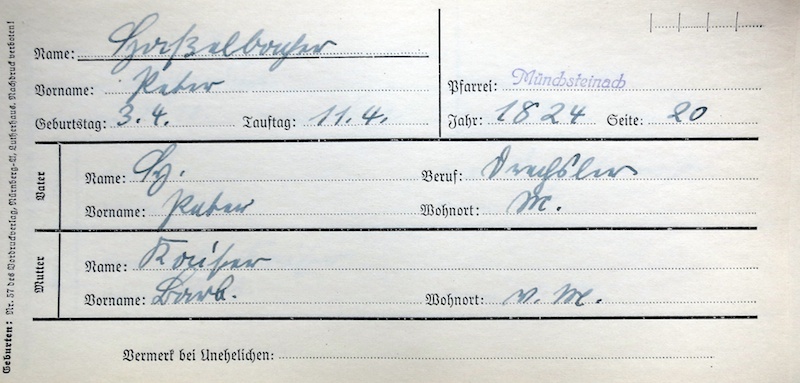 Name: Haßelbacher
Vorname: Peter
Pfarrei: Münchsteinach
Geburtstag: 3.4. Tauftag: 11.4. Jahr: 1824 Seite: 20
Vater
Name: H. Beruf: Drechsler
Vorname: Peter Wohnort: M.
Mutter
Name: Kaißer
Vorname: Barb. Wohnort: v. M.
Vermerk bei Unehelichen:
Geburten: Nr. 57 des Vordruckverlag, Nürnberg-A, Lutherhaus. Nachdruck verboten!